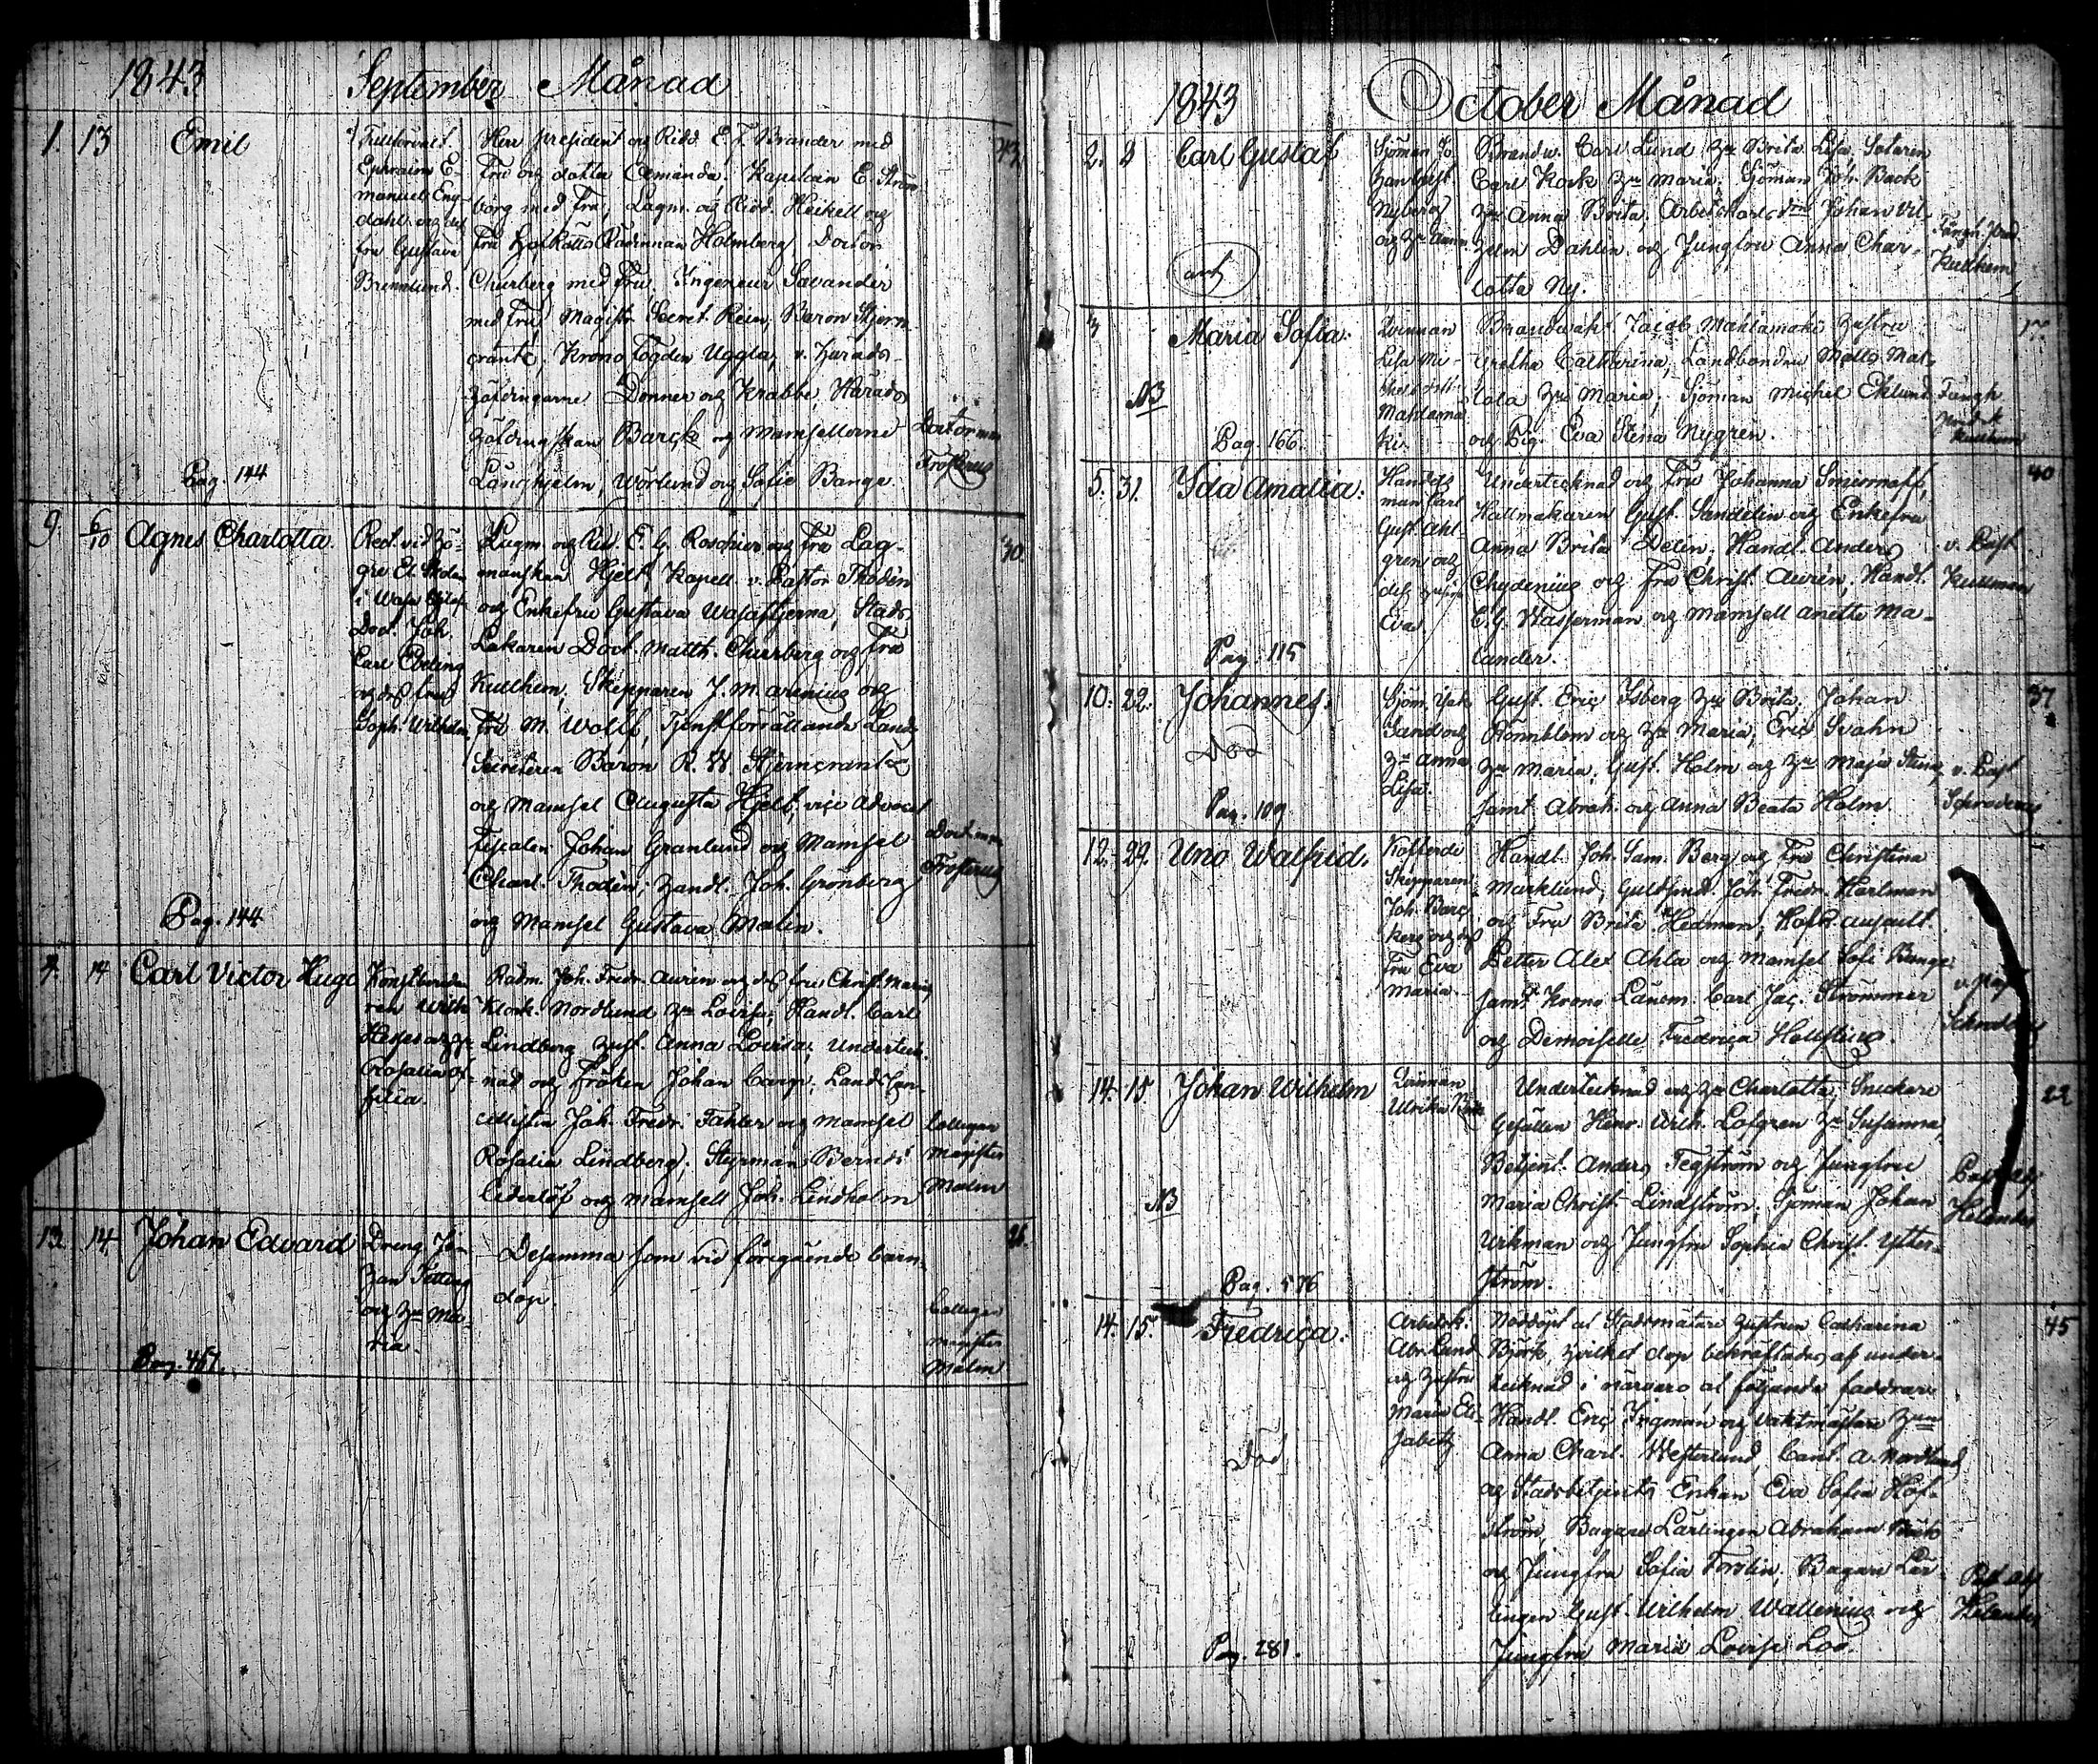 1843 September Månad
1. 13 Emil
Ephraim E-
manuel Eng-
dahl och dess
fru Gustava
Brennlund.
Herr President och Ridd. E. F. Brander med
Fru och dotter Amanda, Kapitan E.
borg med fru, Lagm. och Ridd. Heikell och
fru Holmberg Doctor
Churberg med fru, Ingenieur Savander
med fru, Magistr. Secret. Rein, Baron Stjern
crantz, Krono fogden Uggla, v. Härads-
höfdingarne Donner och Krabbe, Härads
höfdingskan Barck och Mamsellerne
Långhjelm, Wörlund och Sofie Bange.
Doctorn
Frosterus
Pag. 144
9. 6/10 Agnes Charlotta.
Rect. vid hö-
gre El. Skolan
i Wasa
Doct. Joh.
Carl Ebeling
och dess fru
Soph. Wilhelm.
Lagm. och Rid. E. G. Roschier och Fru Lag-
manskan Hjelt, Kapell. v. Pastor Thodén
och Enkefru Gustava Wasastjerna, Stads
Läkaren Doct. Matth. Churberg och fru
Kullhem, Skepparen J. M. Arenius och
fru M. Wolff, Tjenstförrättande Lands
Secreteren Baron R. W. Stjerncrantz
och Mamsel Augusta Hjelt, vice Advocat
fiscalen Johan Granlund och Mamsel
Charl. Thodén, Handl. Joh. Grönberg
och Mamsel Gustava Malin.
Frosterus
30.
Pag. 144
14 Carl Victor Hugo
Rosalia
Rådm. Joh. Fredr. Auren och dess fru Christ. Maria
Klock. Nordlund hu Lovisa, Handl. Carl
Lindberg hust. Anna Lovisa, Underteck-
nad och fröken Johan Lands Can-
cellisten Joh. Fredr. Fahler och Mamsel
Rosalia Lindberg, Styrman Bernds
Cederlöf och Mamsell Joh. Lindholm
Collegan
Magister
Malm
13. 14. Johan Edvard
Dreng Jo-
han
och hu Ma-
ria.
Desamma som vid föregående barn-
dop.
Collegan
Magister
Malm
1843 October Månad
2. Carl Gustaf
Sjöman Jo-
han Gust.
Nyberg
och hu Anna
Brandw. Carl Lund hu Brita Lisa, Sotaren
Carl Kock hu Maria, Sjöman Joh. Back
hu Anna Brita, Arbetskarls Johan Vil-
helm Dahlin och Jungfru Anna Char-
lotta Ny.
Kullhem
3 Maria Sofia.
Qvinnan
Lisa
Mahlamä
ki.
Brandwakt Jacob Mahlamäki hustru
Gretha Catharina, Landbonden Matts Mat-
tola hu Maria, Sjöman Michel Eklund
och Pig. Eva Stina Nygren.
Fängh.
Kullhem
NB
Pag. 166.
5. 31. Ida Amalia.
Handels
man Carl
Gust. Ahl-
gren och
dess hustru
Eva
Undertecknad och Fru Johanna Smirnoff,
Hattmakaren Gust. Sandelin och Enkefru
Anna Brita Delen, Handl. Anders
Chydenius och fru Christ. Auren, Handl.
C. G. Wasserman och Mamsell Anette Ma-
lander.
v. Past
Kullman
40
Pag. 115
10. 22. Johannes.
Död
Sjöm. Isak
Sand och
hu Anna
Lisa.
Gust. Eric Isberg hu Brita, Johan
Rönnblom och hu Maria, Eric Svahn
hu Maria, Gust. Holm och hu Maja Stina,
samt Abrah. och Anna Beata Holm.
v. Past
Schroderus
37
Pag. 109
12. 29. Uno Walfrid.
Kofferdi
Skepparen
Joh. Barc
kers och dess
fru Eva
Maria.
Handl. Joh. Sam. Berg och fru Christina
Marklund, Guldsmd. Joh. Fredr. Hartman
och Fru Brita Hedman, Hofr. auscult.
Petter Alex Ahla och Mamsel Sofi Bange
samt Krono Länsm. Carl Jac. Strömmer
och Demoiselle Fredrica Hellstius.
14. 15. Johan Wilhelm
Qvinnan
Ulrika
Undertecknad och hu Charlotta, Snickare
Gesällen Henr. Wilh. Löfgren hu Susanna,
Betjent. Anders Tegström och Jungfru
Maria Christ. Lindström, Sjöman Johan
Wikman och Jungfru Sophia Christ. Ytter-
ström.
Helander
22
NB
Pag. 576
14. 15. Fredrica.
Arbetsk.
Abr. Lund
och hustru
Maria Eli-
sabeth
Nöddöpt af Stadsmätare hustrun Catharina
Björk, hvilket dop bekräftades af under-
tecknad i närvaro af följande faddrar
Handl. Eric Ingman och Vaktmästare hun
Anna Charl. Westerlund, Cant. A. Nordlund
och Stadsbetjents Enkan Eva Sofia Hof-
ström, Bagare Lärlingen Abraham
och Jungfru Sofia Forslin, Bagare Lär-
lingen Gust. Wilhelm Wallenius och
Jungfru Maria Lovisa Loo.
Helander
45
Död
Pag. 281.